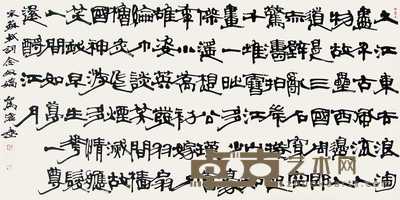 大江東去浪淘
盡千古風流人
物故壘西邊人
道是三國周郎
赤壁亂石穿空
驚濤拍岸卷起
千堆雪江山如
畫一時多少豪
傑遙想公瑾當
年小喬初嫁了
雄姿英發羽扇
綸巾談笑間檣
櫓灰飛煙滅故
國神遊多情應
笑我早生華髮
人間如夢一尊
還酹江月
宋蘇軾詞念奴嬌
艺术网